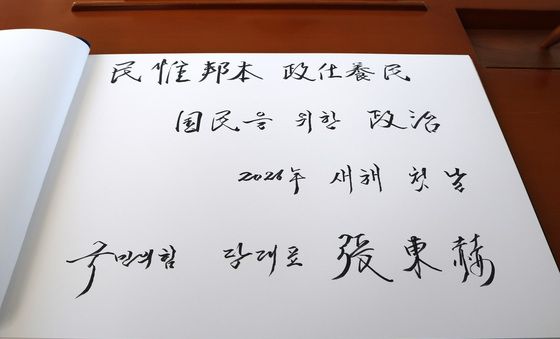 民惟邦本 政在養民
国民을 위한 政治
2026年 새해 첫 날
국민의힘 당대표 張東赫